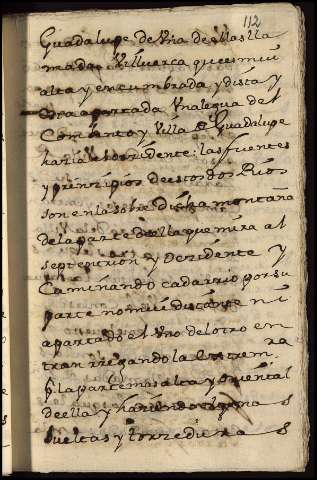 112
Guadalupe de Vna de ellas lla
mada Villuerca que es mui
alta y encumbrada y dista y
esta apartada Vna legua del
Combento y Villa de Guadalupe
hazia el ocçidente: las fuentes
y prinzipios de estos dos Rios
son en la sobre dicha montaña
de la parte de ella que mira al
septentrion y ocçidente y
Caminando cada rio por su
parte no mui distante ni
apartado el Vno del otro en
tran rregando la Extrem.ra
p.r la parte mas alta y oriental
de ella y haziendo algunas
bueltas y torzeduras